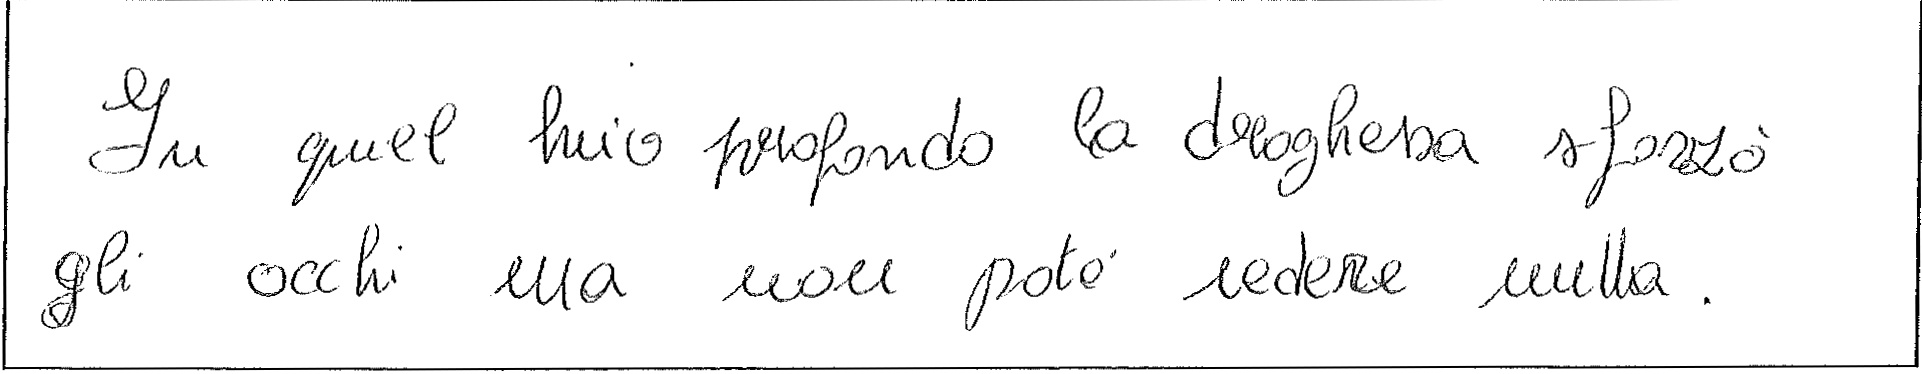 In quel buio profondo la droghera sforzò
gli occhi ma non poté vedere nulla.